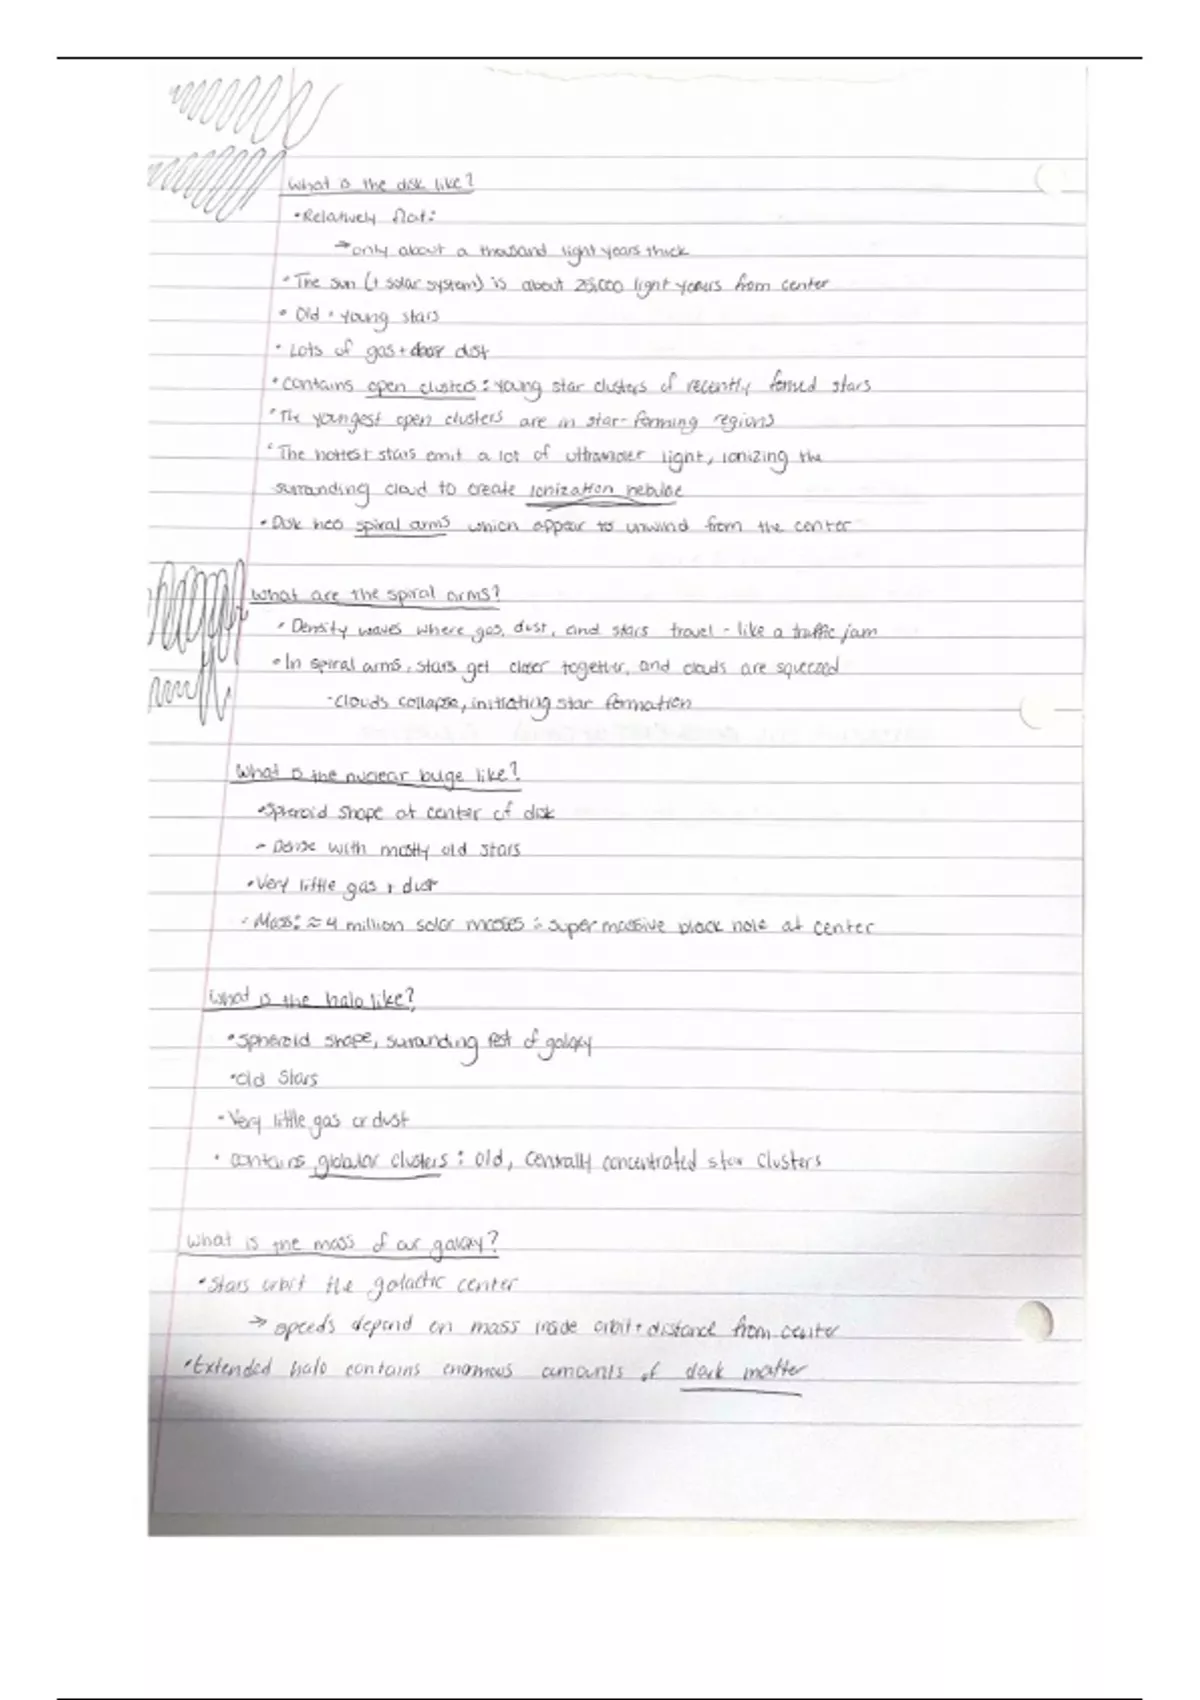 What is the disk like?
• Relatively flat:
→ only about a thousand light years thick
• The sun (+ solar system) is about 25,000 light years from center
• Old + young stars
• Lots of gas + dust
• Contains open clusters: young star clusters of recently formed stars
• The youngest open clusters are in star-forming regions
• The hottest stars emit a lot of ultraviolet light, ionizing the
surrounding cloud to create ionization nebulae
• Disk has spiral arms which appear to unwind from the center
What are the spiral arms?
• Density waves where gas, dust, and stars travel - like a traffic jam
• In spiral arms, stars get closer together, and clouds are squeezed
- Clouds collapse, initiating star formation
What is the nuclear buge like?
• Spheroid shape at center of disk
- Dense with mostly old stars
• Very little gas + dust
• Mass: ≈ 4 million solar masses ∴ supermassive black hole at center
What is the halo like?
• Spheroid shape, surrounding rest of galaxy
• Old Stars
• Very little gas or dust
• contains globular clusters: old, centrally concentrated star clusters
What is the mass of our galaxy?
• Stars orbit the galactic center
→ speeds depend on mass inside orbit + distance from center
• Extended halo contains enormous amounts of dark matter